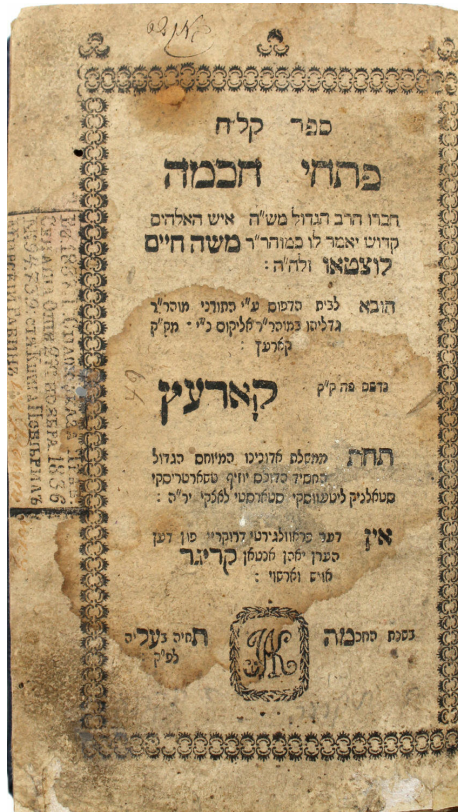 ספר קל״ח
פתחי חכמה
חברו הרב הגדול מש״ה איש האלהים
קדוש יאמר לו כמוהר״ר משה חיים
לוצטאו זלה״ה :
הובא לבית הדפוס ע״י התורני מוהר״ר
גדליהו במוהר״ר אליקום כ״י · מק״ק
קארעץ :
נדפס פה ק״ק קארעץ
תחת ממשלת אדונינו המיוחס הגדול
החסיד הדוכס יוזיף טשארטריסקי
סטאלניק ליטעווסקי סטארסטי לאצקי יר״ה :
אין דער פראוולגירטי דרוקריי פון דען
הערן יאהן אנטאן קריגר
אויש ווארשוי :
בשנת החכמה תחיה בעליה
לפ״ק